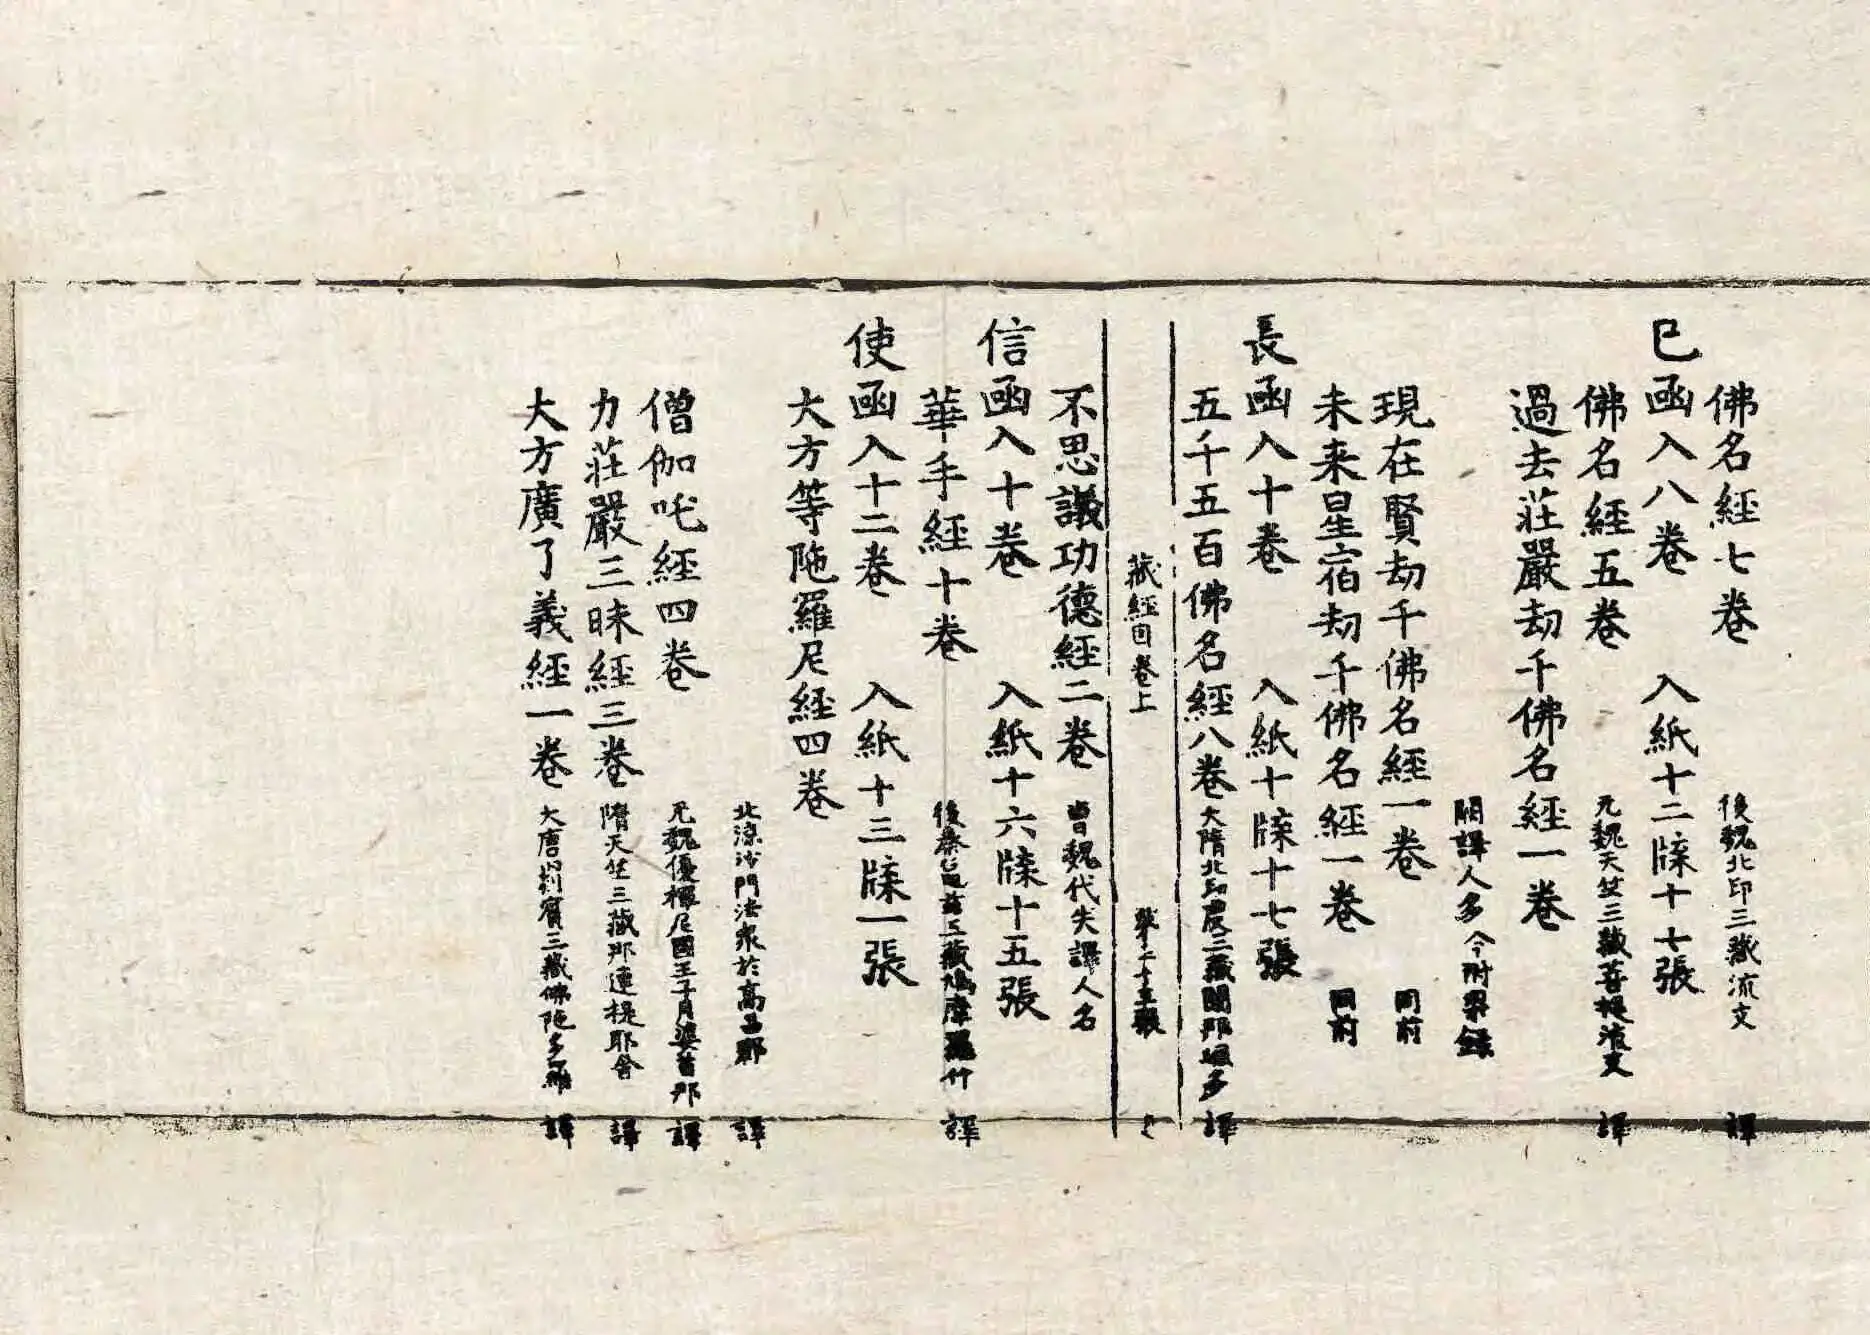 佛名経七卷 後魏北印三藏流支 譯
已函入八卷 入紙十二牒十七張
佛名経五卷 元魏天竺三藏菩提流支 譯
過去莊嚴劫千佛名経一卷
闕譯人名今附梁録
現在賢劫千佛名経一卷 同前
未来星宿劫千佛名経一卷 同前
長函入十卷 入紙十牒十七張
五千五百佛名経八卷 大隋北印度三藏闍那崛多 譯
藏経目卷上 第二十五張
不思議功德経二卷 曹魏代失譯人名
信函入十卷 入紙十六牒十五張
華手経十卷 後秦龜茲三藏鳩摩羅什 譯
使函入十二卷 入紙十三牒一張
大方等陁羅尼経四卷
北涼沙門法衆於高昌郡 譯
僧伽吒経四卷 元魏優禪尼國王子月婆首那 譯
力莊嚴三昧経三卷 隋天竺三藏那連提耶舍 譯
大方廣了義経一卷 大唐罽賓三藏佛陁多羅 譯